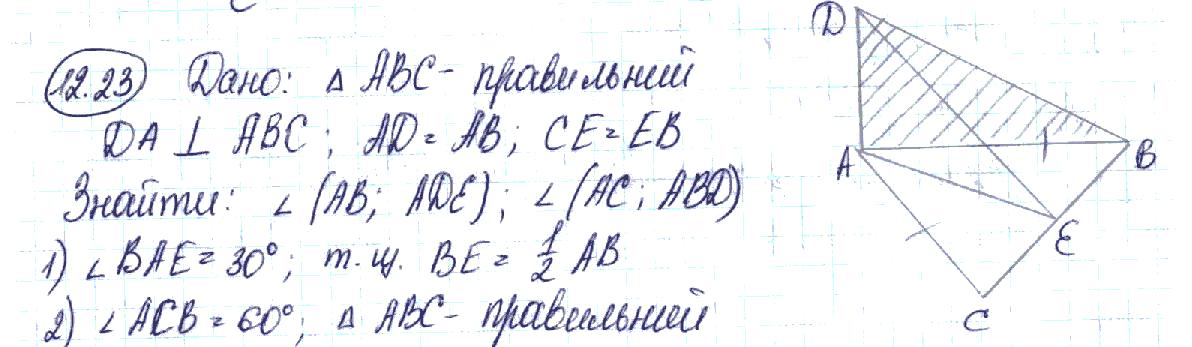 12.23 Дано: Δ ABC - правильний
DA ⊥ ABC; AD = AB; CE = EB
Знайти: ∠ (AB; ADE); ∠ (AC; ABD)
1) ∠ BAE = 30°; т.щ. BE = 1/2 AB
2) ∠ ACB = 60°; Δ ABC - правильний
D
A
B
E
C